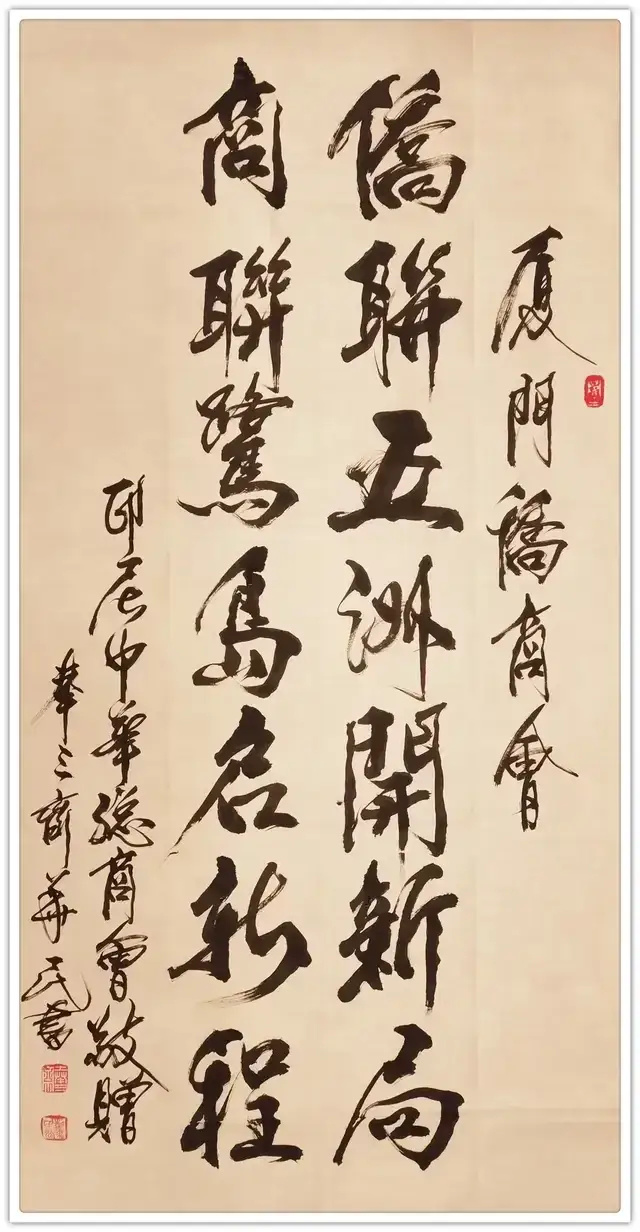 厦門僑商會
僑聯五洲開新局
商聯鷺島启新程
印尼中華總商會敬贈
齋華民書